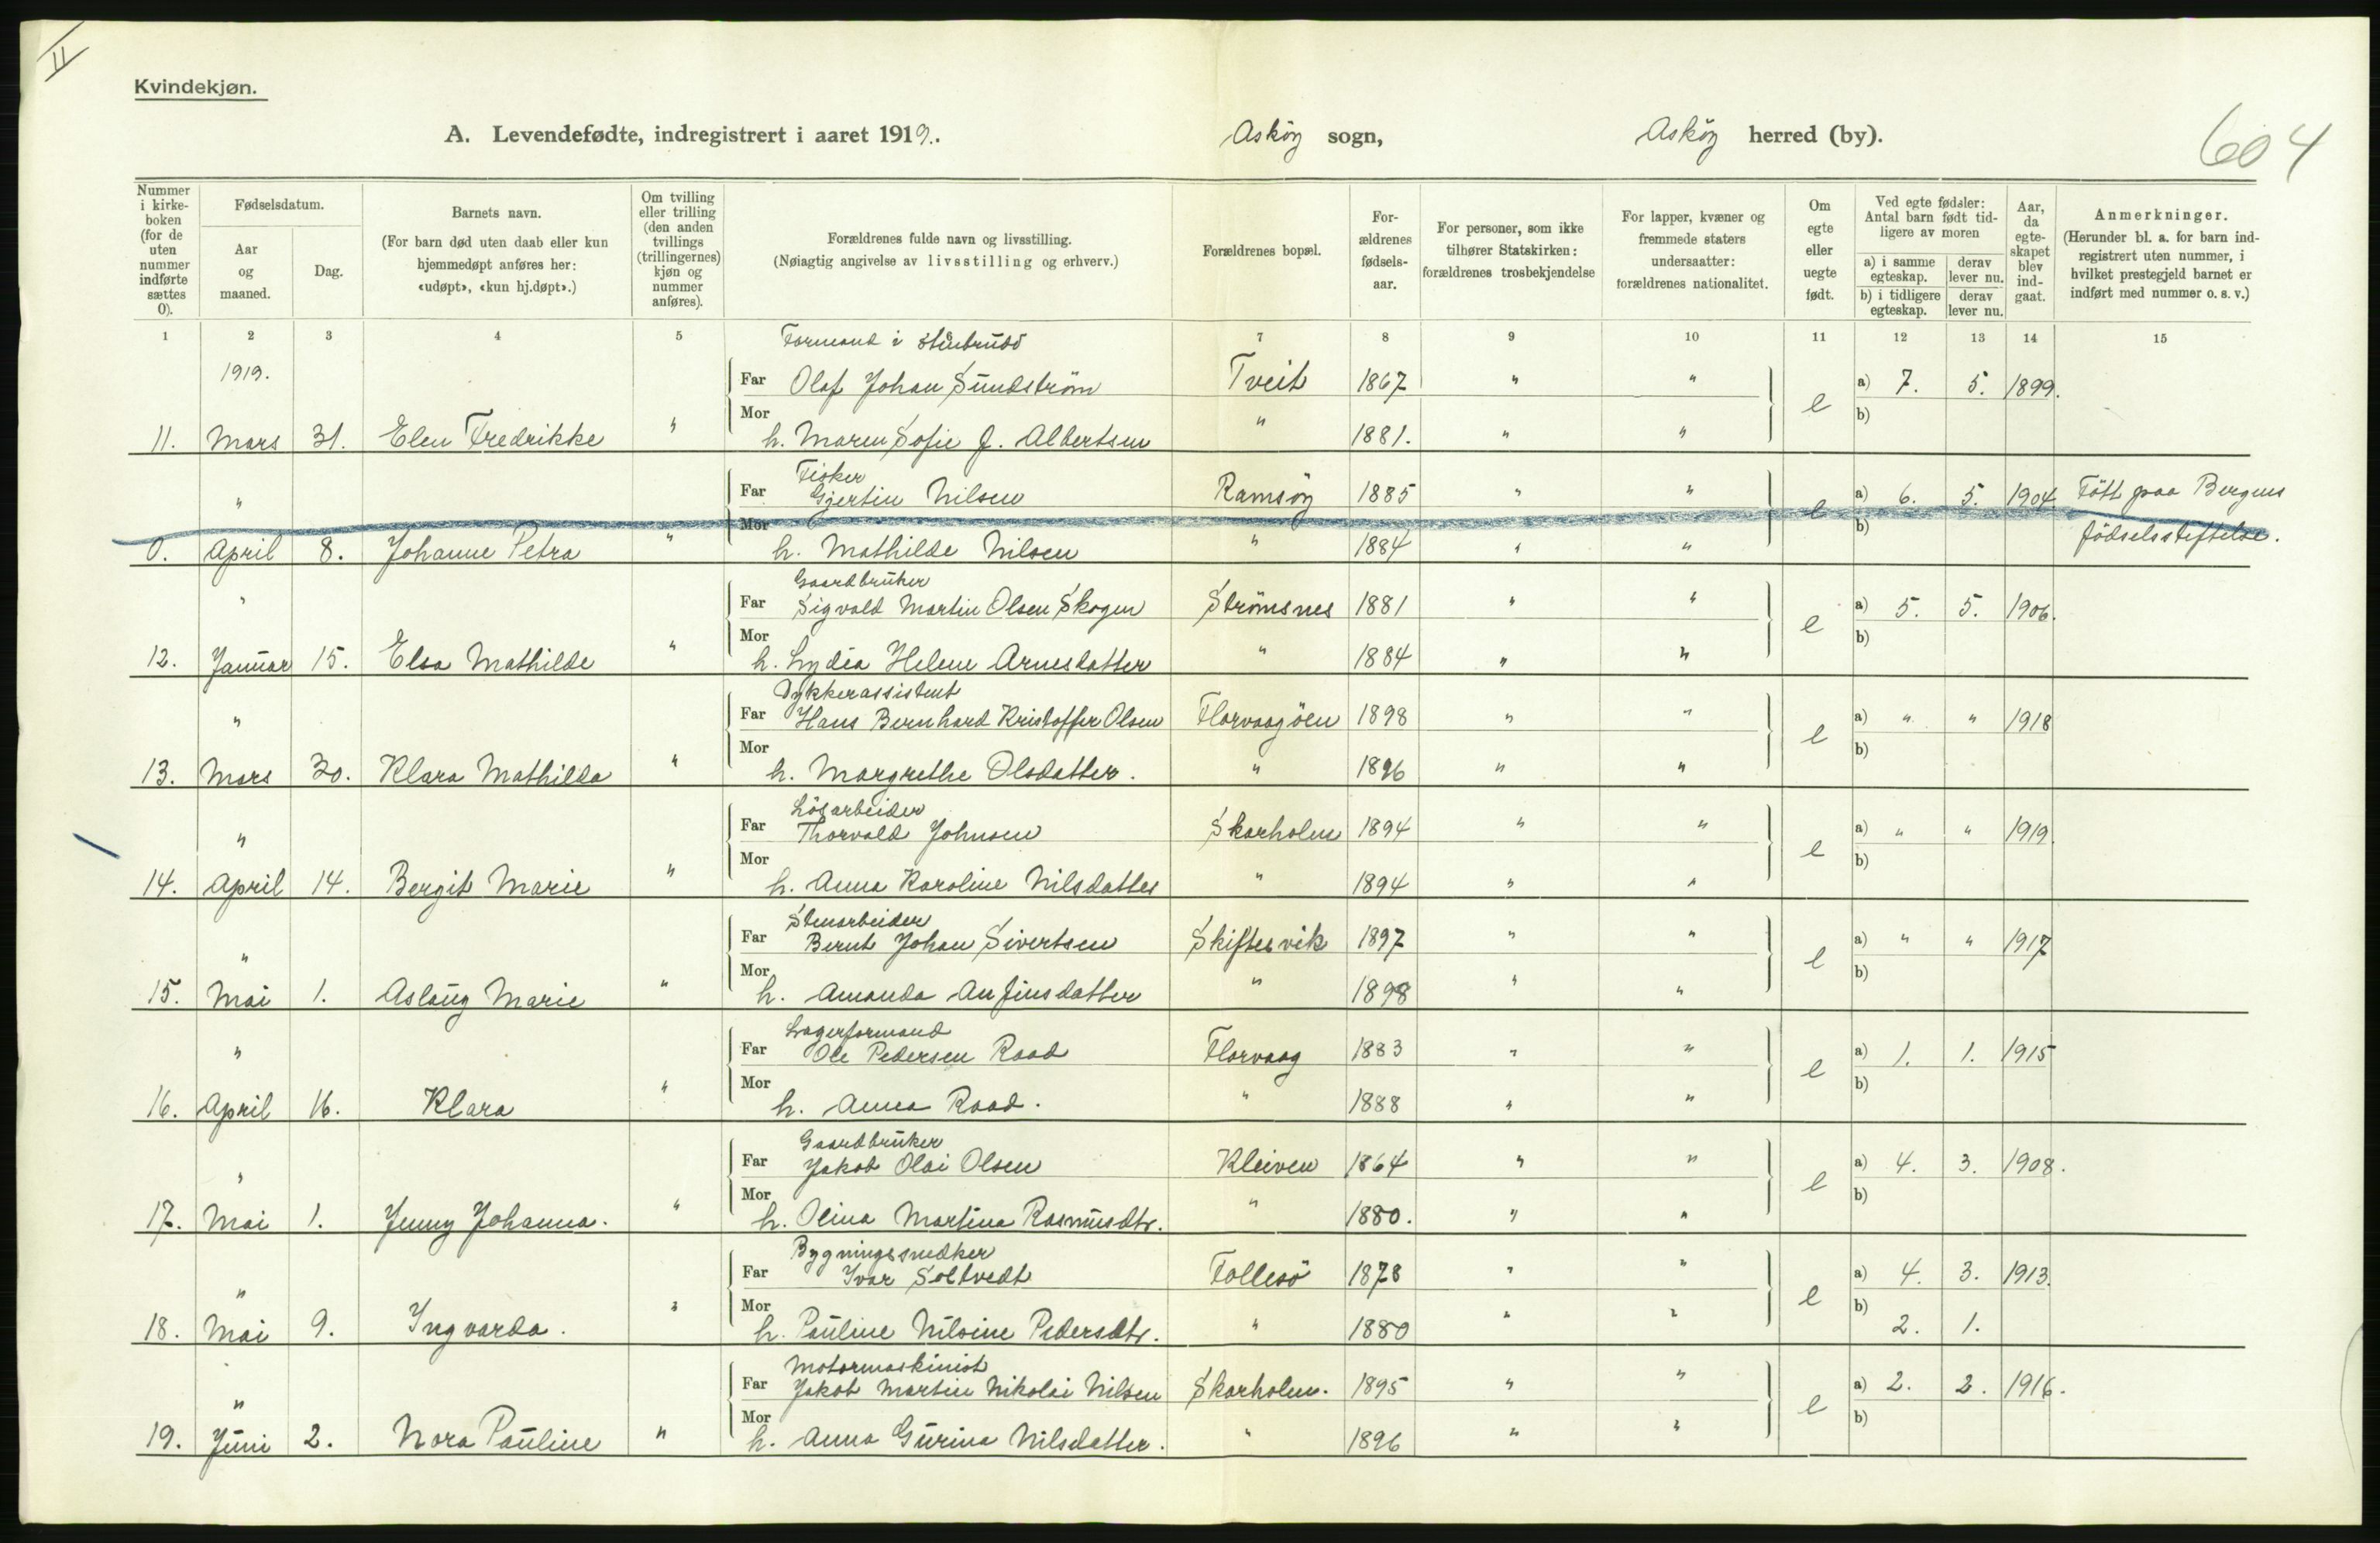 II
Kvindekjøn.
604
A. Levendefødte, indregistrert i aaret 1919. Askøy sogn, Askøy herred (by).
Nummer i kirkeboken (for de uten nummer indførte sættes 0).
Fødselsdatum.
Aar og maaned.
Dag.
Barnets navn.
(For barn død uten daab eller kun hjemmedøpt anføres her: «udøpt», «kun hj.døpt».)
Om tvilling eller trilling (den anden tvillings (trillingernes) kjøn og nummer anføres).
Forældrenes fulde navn og livsstilling.
(Nøiagtig angivelse av livsstilling og erhverv.)
Forældrenes bopæl.
Forældrenes fødselsaar.
For personer, som ikke tilhører Statskirken: forældrenes trosbekjendelse
For lapper, kvæner og fremmede staters undersaatter: forældrenes nationalitet.
Om egte eller uegte født.
Ved egte fødsler: Antal barn født tidligere av moren
a) i samme egteskap. derav lever nu.
b) i tidligere egteskap. derav lever nu.
Aar, da egteskapet blev indgaat.
Anmerkninger.
(Herunder bl. a. for barn indregistrert uten nummer, i hvilket prestegjeld barnet er indført med nummer o. s. v.)
1 2 3 4 5 7 8 9 10 11 12 13 14 15
Formand i stenbrudd
1919. Far Olaf Johan Sundström Tveit 1867 " " e a) 7. 5. 1899.
11. Mars 31. Elen Fredrikke " Mor h. Maren Sofie J. Albertsen " 1881. " " b)
Fisker
" Far Gjertin Nilsen Ramsöy 1885 " " e a) 6. 5. 1904 Födt paa Bergens
0. April 8. Johanne Petra " Mor h. Mathilde Nilsen " 1884 " " b) födselsstiftelse.
Gaardbruker
" Far Sigvald Martin Olsen Skogen Strömsnes 1881 " " e a) 5. 5. 1906.
12. Januar 15. Elsa Mathilde " Mor h. Lydia Helene Arnesdatter " 1884 " " b)
Dykkerassistent
" Far Hans Bernhard Kristoffer Olsen Florvaagöen 1898 " " e a) " " 1918
13. Mars 30. Klara Mathilda " Mor h. Margrethe Olsdatter. " 1896 " " b)
Lösarbeider
" Far Thorvald Johnsen Skarholm 1894 " " e a) " " 1919.
14. April 14. Bergit Marie " Mor h. Anna Karoline Nilsdatter " 1894 " " b)
Stenarbeider
" Far Bernt Johan Sivertsen Skiftesvik 1897 " " e a) " " 1917
15. Mai 1. Aslaug Marie " Mor h. Amanda Anfinsdatter " 1898 " " b)
Lagerformand
" Far Ole Pedersen Raad Florvaag 1883 " " e a) 1. 1. 1915
16. April 16. Klara " Mor h. Anna Raad. " 1888 " " b)
Gaardbruker
" Far Jakob Olai Olsen Kleiven 1864 " " e a) 4. 3. 1908.
17. Mai 1. Jenny Johanna. " Mor h. Olina Martina Rasmusdtr. " 1880. " " b)
Bygningssnedker
" Far Ivar Soltvedt Follesö 1878 " " e a) 4. 3. 1913.
18. Mai 9. Ingvarda. " Mor h. Pauline Nilsine Pedersdtr. " 1880 " " b) 2. 1.
Motormaskinist
" Far Jakob Martin Nikolai Nilsen Skarholm. 1895 " " e a) 2. 2. 1916.
19. Juni 2. Nora Pauline " Mor h. Anna Gurina Nilsdatter. " 1896 " " b)